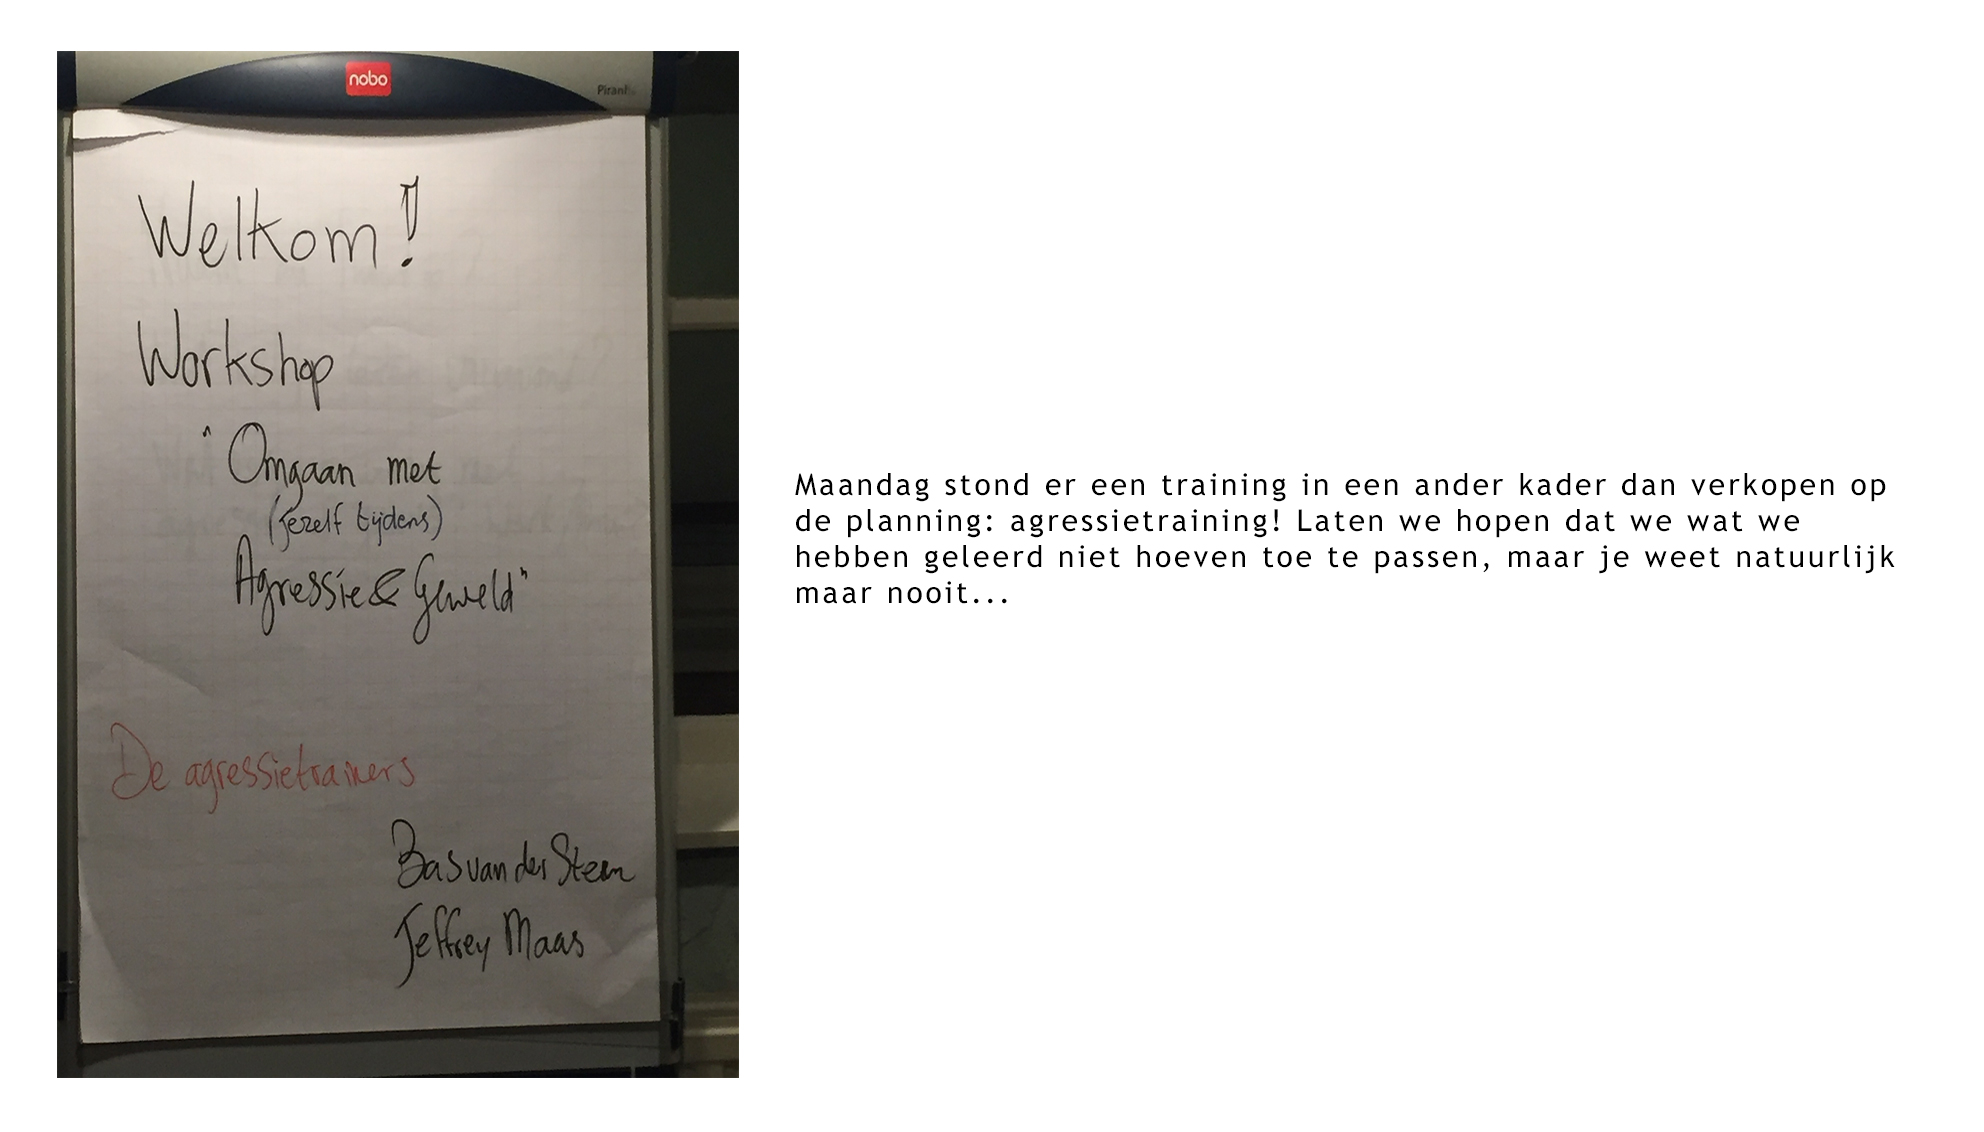 nobo
Welkom!
Workshop
"Omgaan met
(jezelf tijdens)
Agressie & Geweld"
De agressietrainers
Bas van der Steen
Jeffrey Maas
Maandag stond er een training in een ander kader dan verkopen op
de planning: agressietraining! Laten we hopen dat we wat we
hebben geleerd niet hoeven toe te passen, maar je weet natuurlijk
maar nooit...